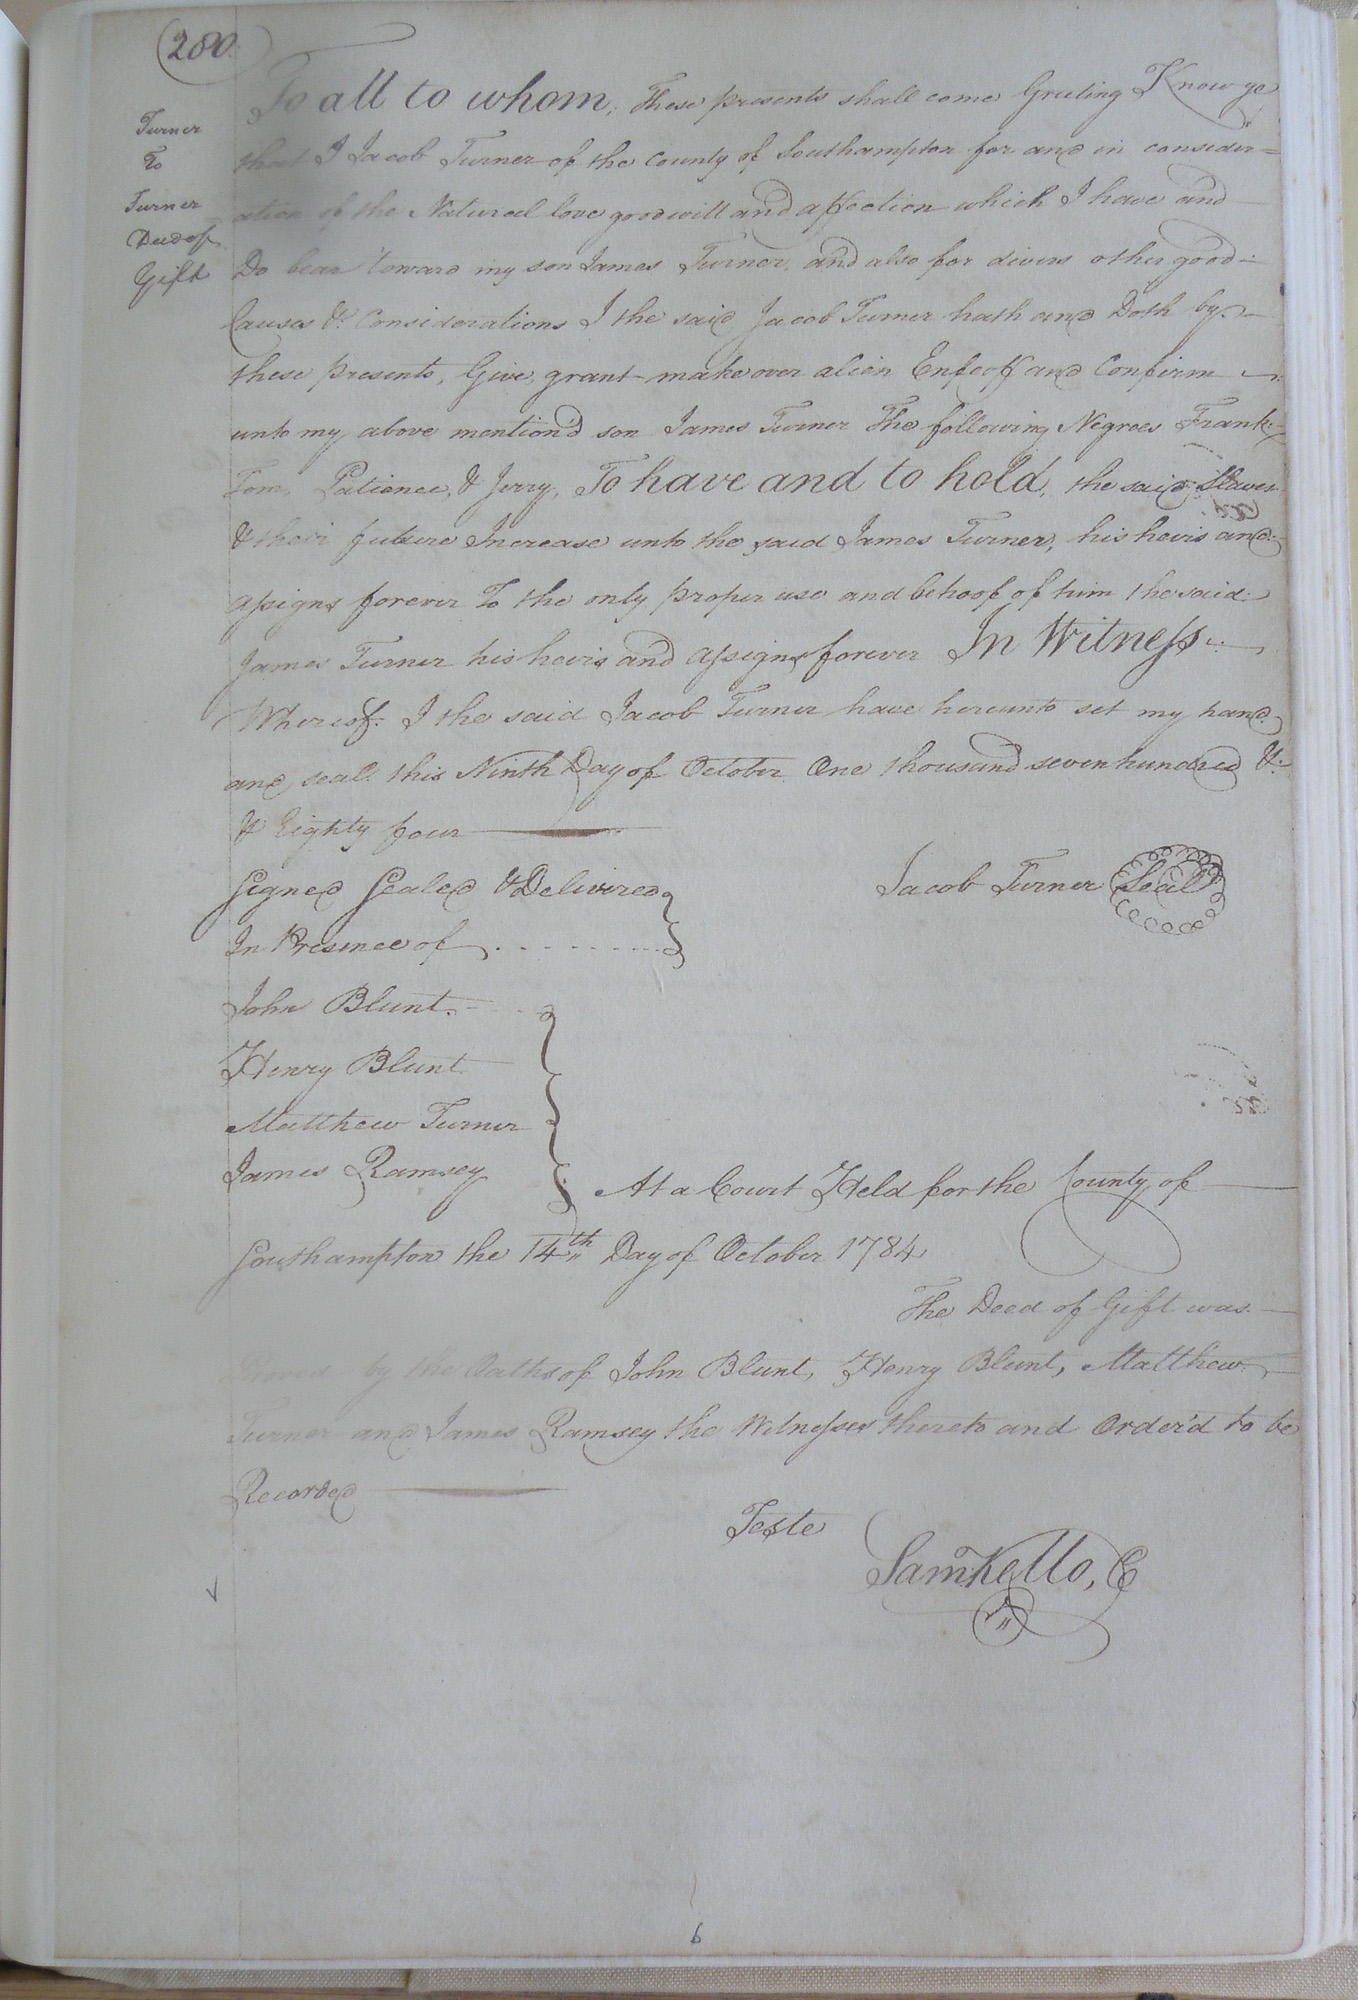 280
Turner
To
Turner
Deed of
Gift
To all to whom, These presents shall come Greeting Know ye
that I Jacob Turner of the County of Southampton for and in consider=
ation of the Natural love goodwill and affection which I have and
Do bear toward my son James Turner, and also for divers other good
Causes & Considerations I the said Jacob Turner hath and Doth by
these presents, Give, grant make over alien Enfeoff and Confirm
unto my above mention'd son James Turner The following Negroes Frank
Tom, Patience, & Jerry, To have and to hold, the said Slaves
& their future Increase unto the said James Turner, his heirs and
assigns forever To the only proper use and behoof of him the said
James Turner his heirs and assigns forever In Witness
Whereof I the said Jacob Turner have hereunto set my hand
and seal this Ninth Day of October One thousand seven hundred &
& Eighty four
Signed Sealed & Delivered
In Presence of
Jacob Turner Seal
John Blunt
Henry Blunt
Matthew Turner
James Ramsey
At a Court Held for the County of
Southampton the 14th Day of October 1784
The Deed of Gift was
Proved by the Oaths of John Blunt, Henry Blunt, Matthew
Turner and James Ramsey the Witnesses thereto and Order'd to be
Recorded
Teste
Sam Kello, C
6